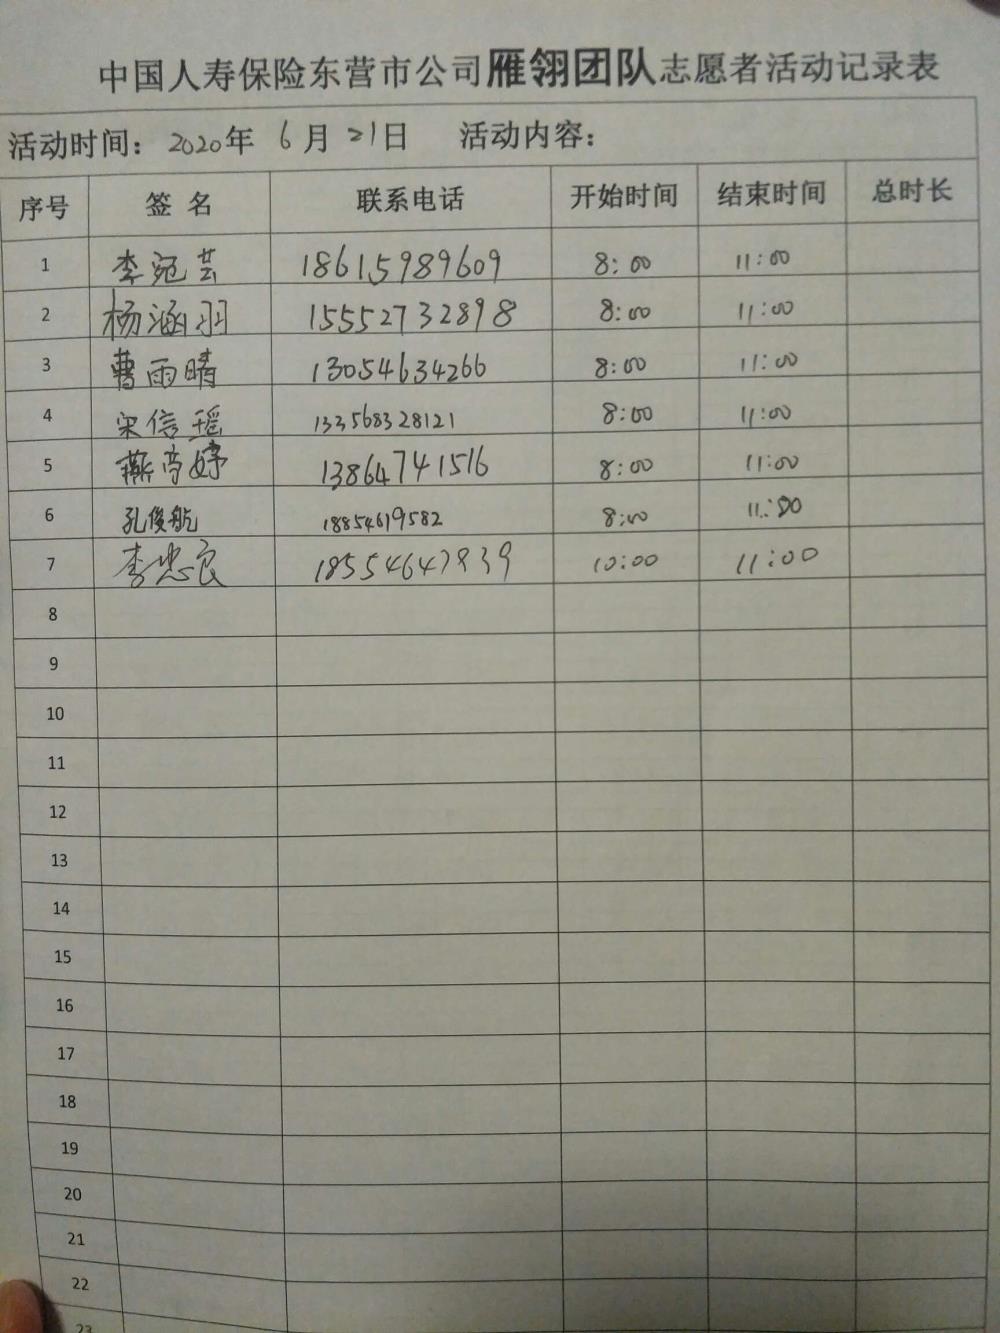 中国人寿保险东营市公司雁翎团队志愿者活动记录表
活动时间：2020年 6月 21日 活动内容：
序号 签 名 联系电话 开始时间 结束时间 总时长
1 李宛芸 18615989609 8:00 11:00
2 杨涵羽 15552732898 8:00 11:00
3 曹雨晴 13054634266 8:00 11:00
4 宋信瑶 133568328121 8:00 11:00
5 13864741516 8:00 11:00
6 孔俊航 18854619582 8:00 11:00
7 李忠良 18554647839 10:00 11:00
8
9
10
11
12
13
14
15
16
17
18
19
20
21
22
23